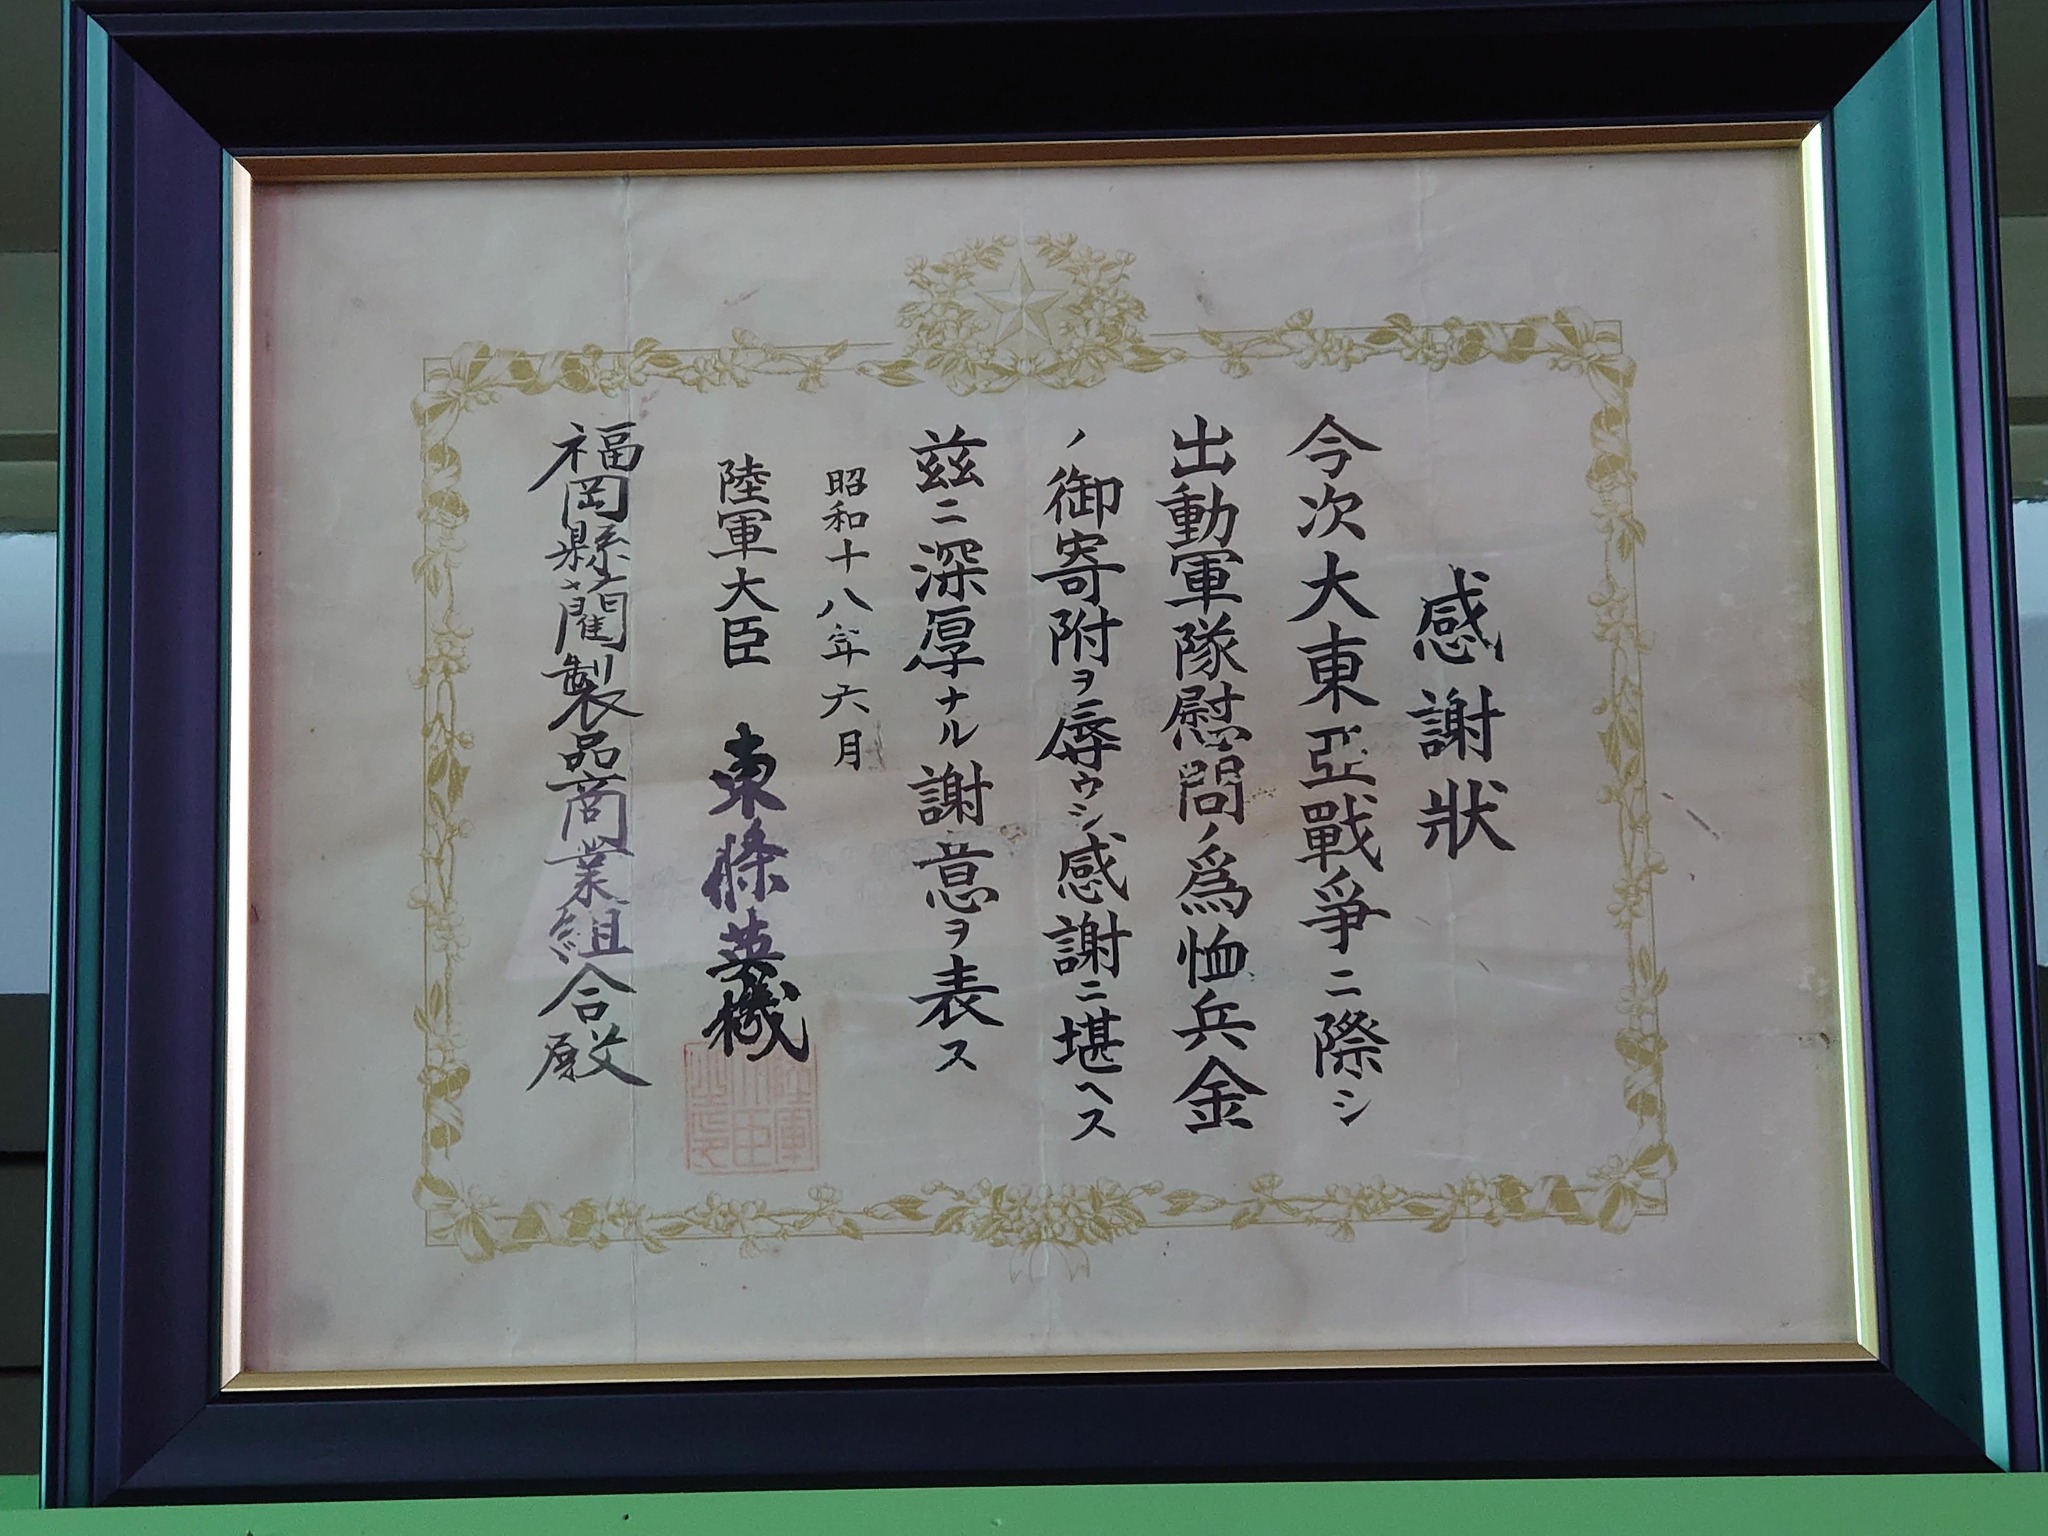 感謝狀
今次大東亞戰爭ニ際シ
出動軍隊慰問ノ爲恤兵金
ノ御寄附ヲ辱ウシ感謝ニ堪ヘス
茲ニ深厚ナル謝意ヲ表ス
昭和十八年六月
陸軍大臣 東條英機
陸軍大臣之印
福岡縣藺製品商業組合殿